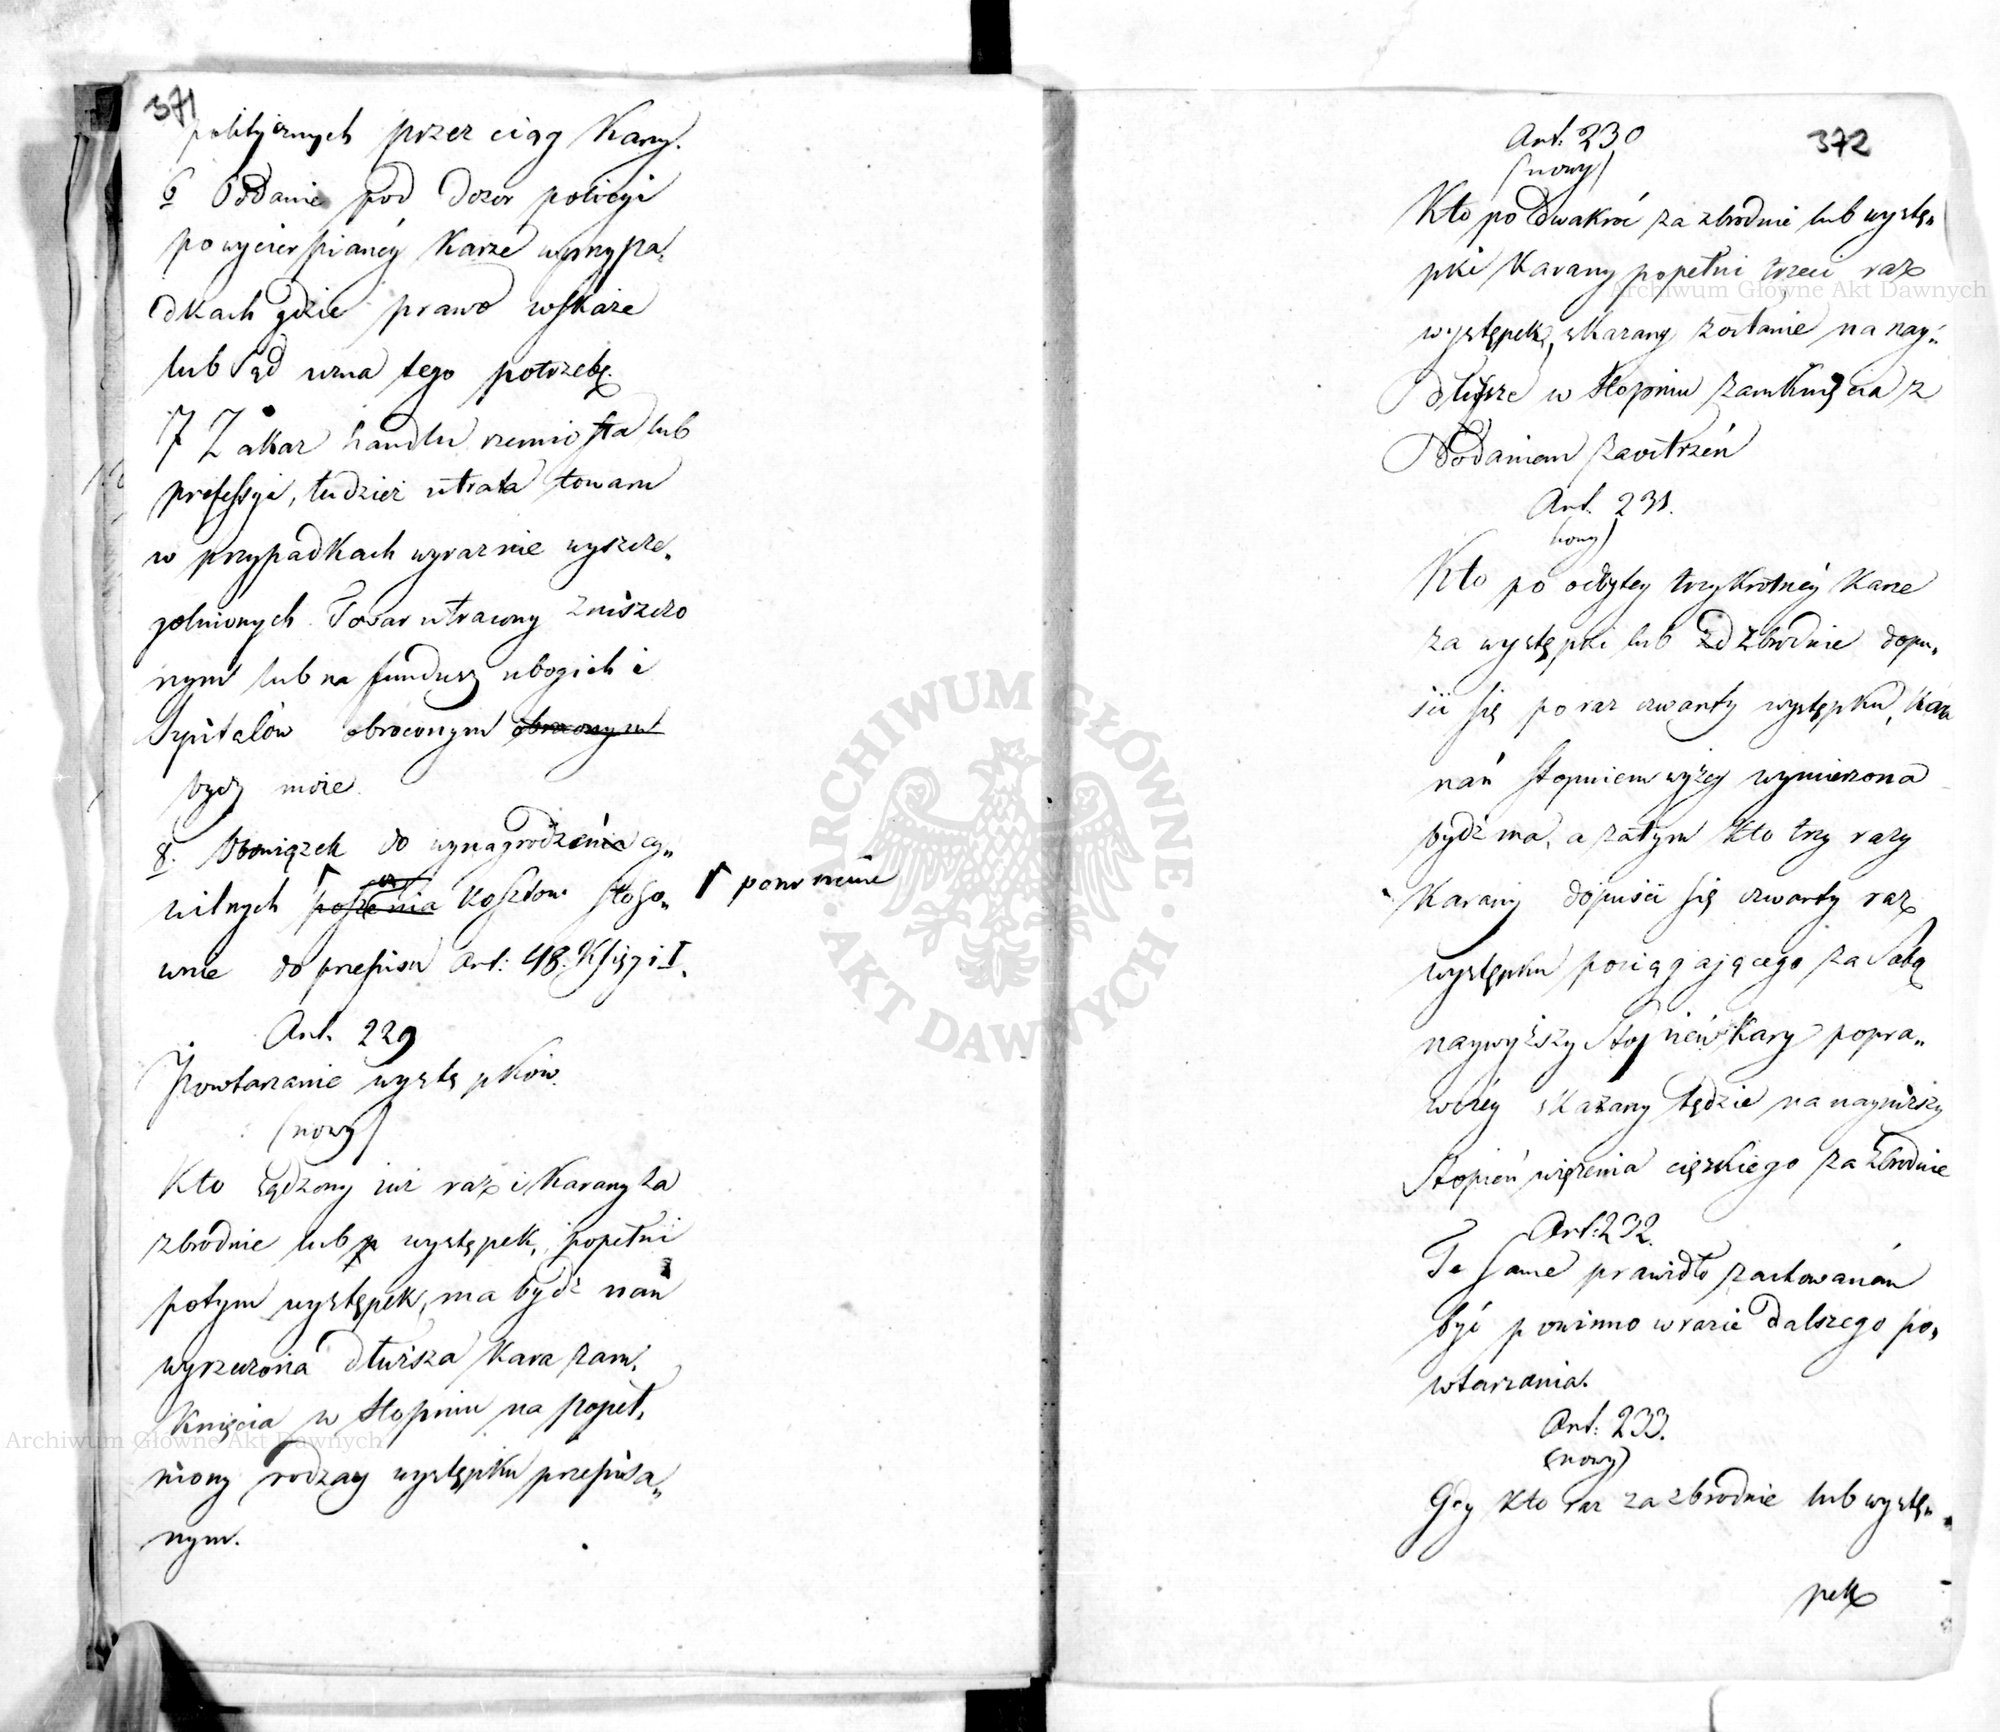 371
politycznych przez ciąg Kary.
6 Oddanie pod Dozor policyi
po wycierpianéy Karze w przypa„
dkach gdzie prawo wskaże
lub Sąd uzna tego potrzebę.
7 Zakaz handlu rzemiosła lub
professyi, tudzież utrata towaru
w przypadkach wyraznie wyszcze„
golnionych. Towar utracony zniszczo
nym lub na fundusz ubogich i
Szpitalów obroconym obroconym
bydz może.
8. Obowiązek do wynagrodzenia cy„
wilnych Kosztow stoso„
ponoszenie
wnie do przepisu Art: 48. Księgi I.
Art. 229
Powtarzanie występków.
(nowy)
Kto sądzony już raz i Karany za
zbrodnie lub p występek, popełni
potym występek, ma bydź nań
wyrzeczona dłuższa Kara zam„
Knięcia w Stopniu na popeł„
niony rodzay występku przepisa„
nym.
372
Art: 230
(nowy)
Kto po dwakroć za zbrodnie lub wystę„
pki Karany popełni trzeci raz
występek, skazany zostanie na nay„
dłuższe w Stopniu zamknięcia z
Dodaniem zaostrzeń
Art. 231.
(nowy)
Kto po odbytey trzykrotnéy Karze
za występki lub zbrodnie dopu„
ści się po raz czwarty występku, Kara
nań stopniem wyżey wymierzona
bydź ma, a zatym Kto trzy razy
Karany dopuści się czwarty raz
występku pociągaiącego za Sobą
naywyższy Stopień Kary popra„
wczéy skazany będzie na nayniższy
Stopień więzienia cięzkiego za zbrodnie
Art: 232.
Te same prawidło zachowaném
być powinno w razie dalszego po„
wtarzania.
Art: 233.
(nowy)
Gdy Kto raz za zbrodnie lub wystę„
pek
Archiwum Główne Akt Dawnych
Archiwum Główne Akt Dawnych
ARCHIWUM GŁÓWNE
AKT DAWNYCH